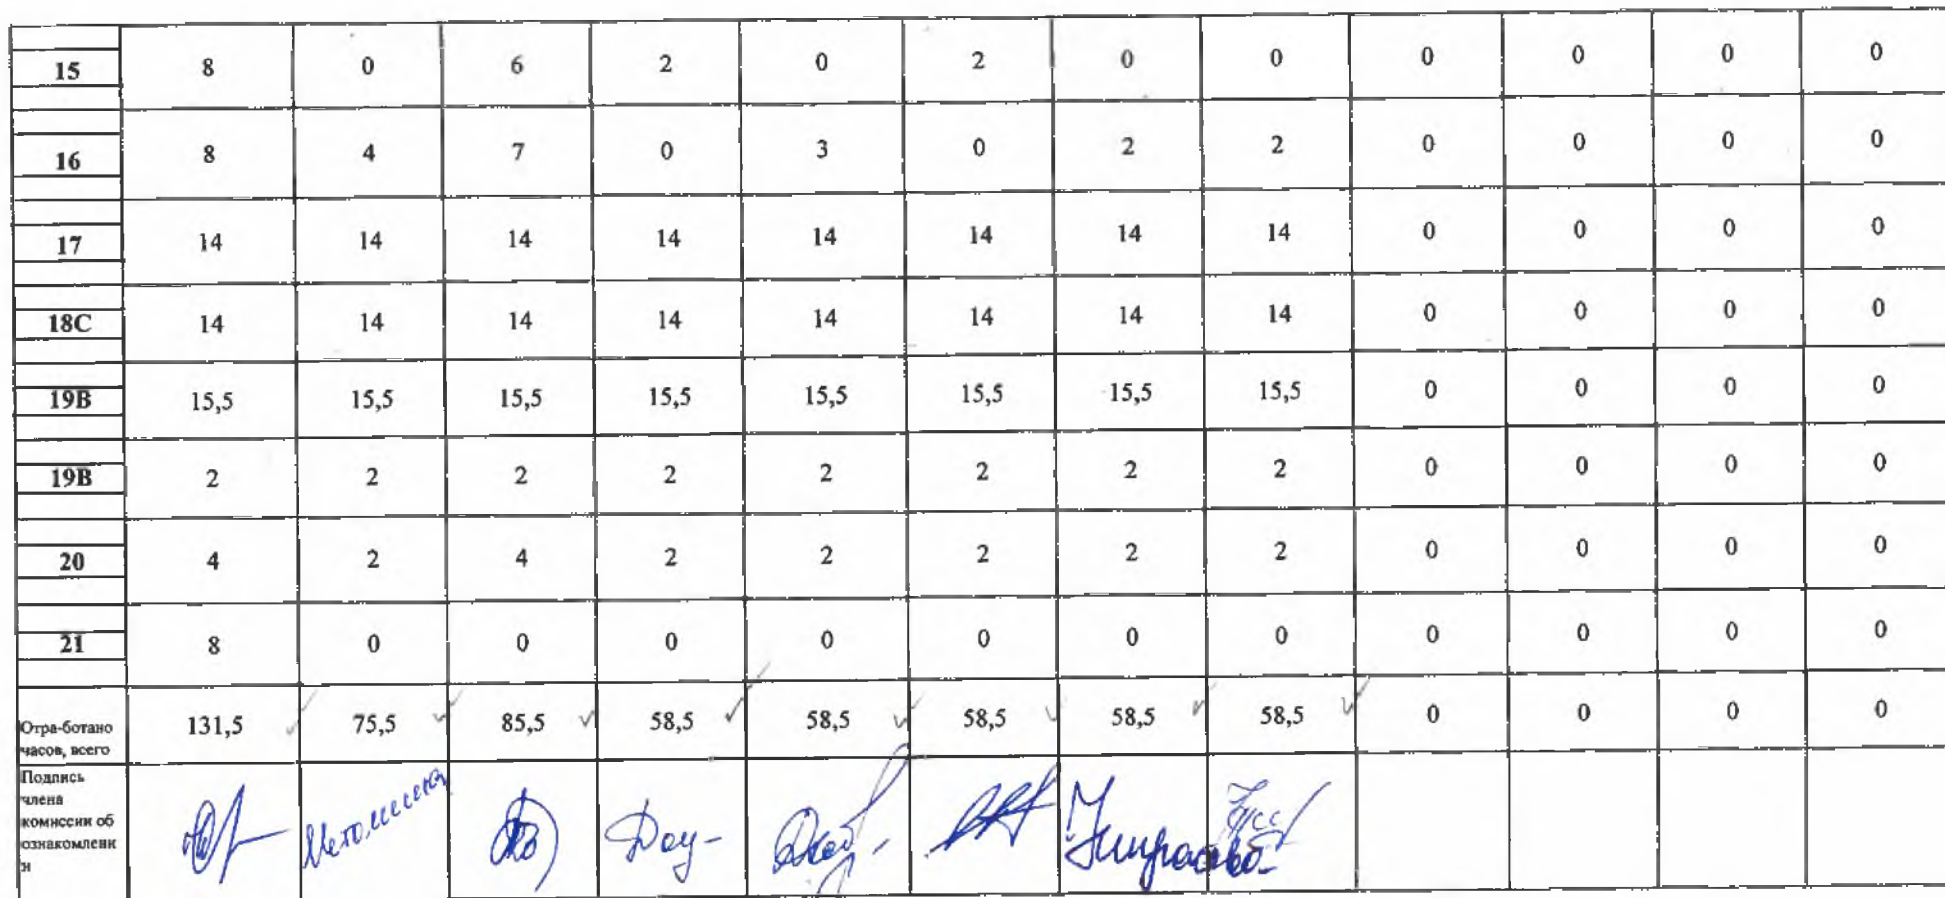 15 8 0 6 2 0 2 0 0 0 0 0 0
16 8 4 7 0 3 0 2 2 0 0 0 0
17 14 14 14 14 14 14 14 14 0 0 0 0
18С 14 14 14 14 14 14 14 14 0 0 0 0
19В 15,5 15,5 15,5 15,5 15,5 15,5 15,5 15,5 0 0 0 0
19В 2 2 2 2 2 2 2 2 0 0 0 0
20 4 2 4 2 2 2 2 2 0 0 0 0
21 8 0 0 0 0 0 0 0 0 0 0 0
Отра-ботано
часов, всего
131,5 75,5 85,5 58,5 58,5 58,5 58,5 58,5 0 0 0 0
Подпись
члена
комиссии об
ознакомлени
и